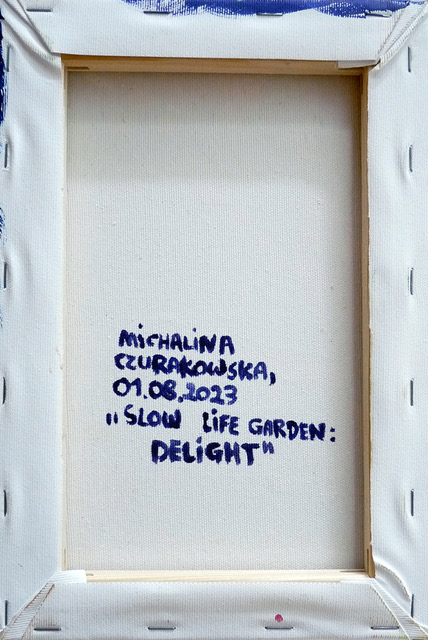 MiCHALiNA
CZURAKOWSKA,
01.08.2023
„SLOW LiFE GARDEN:
DELiGHT"